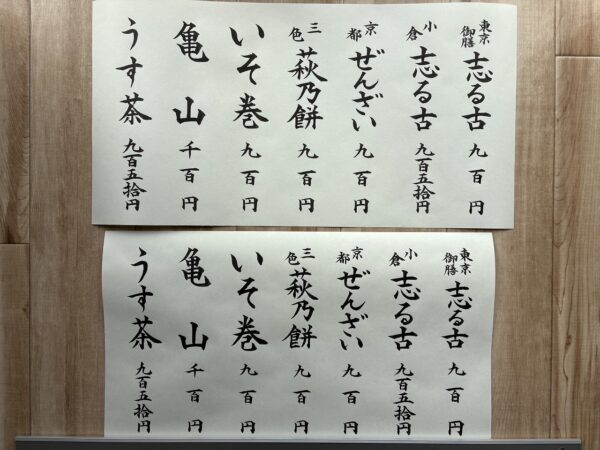 東京御膳 志る古 九百円
小倉 志る古 九百五拾円
京都 ぜんざい 九百円
三色 萩乃餅 九百円
いそ巻 九百円
亀山 千百円
うす茶 九百五拾円
東京御膳 志る古 九百円
小倉 志る古 九百五拾円
京都 ぜんざい 九百円
三色 萩乃餅 九百円
いそ巻 九百円
亀山 千百円
うす茶 九百五拾円